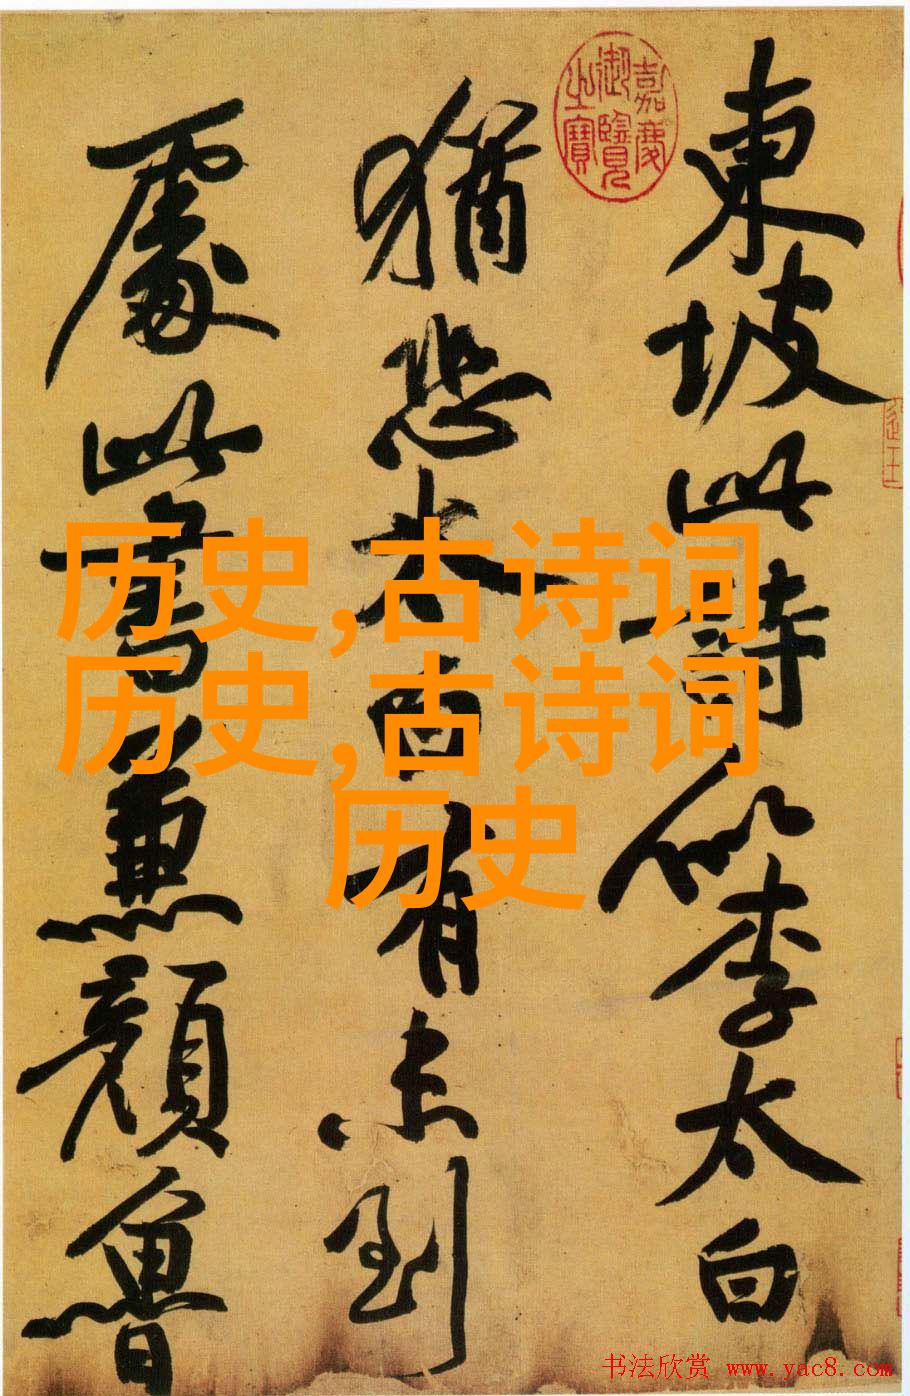 東坡此詩似李太白
猶恐太白有未到
處此書兼顏魯
嘉慶御覽之寶
历史,古诗词
历史,古诗词
历史
书法欣赏 www.yac8.com